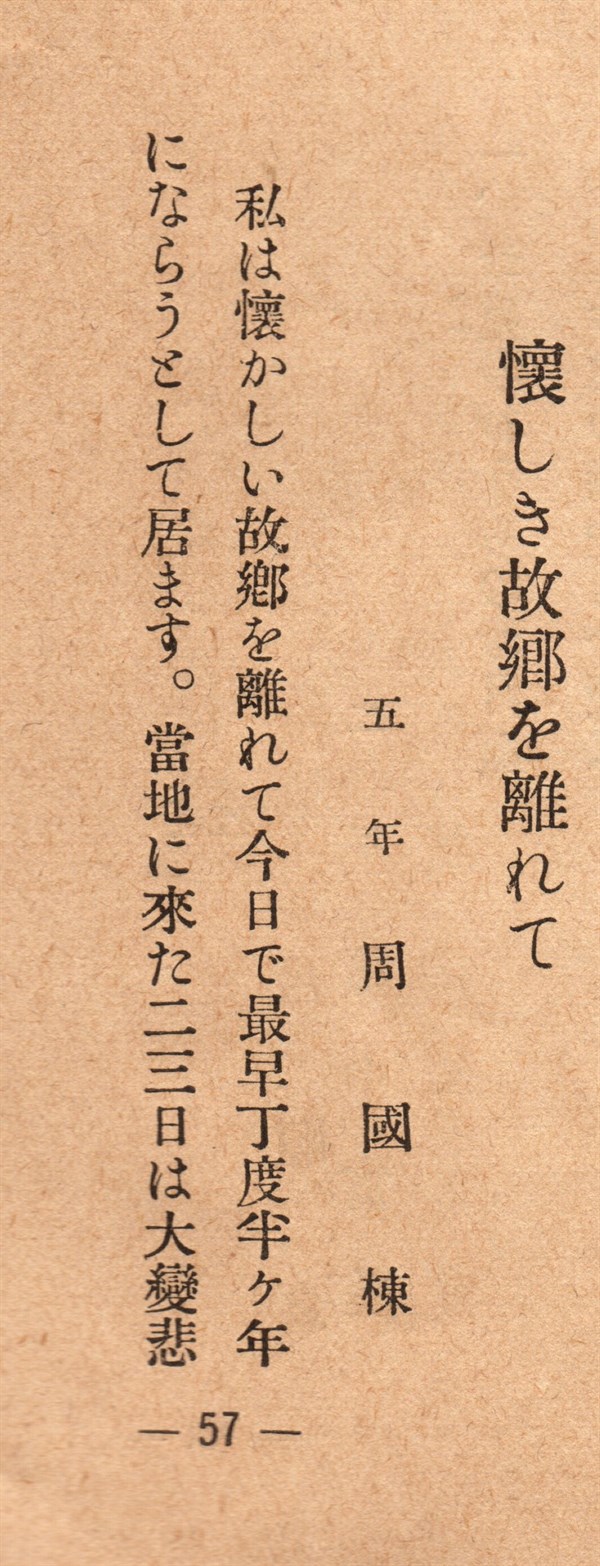 懷しき故鄕を離れて
五年周國棟
私は懷かしい故鄕を離れて今日で最早丁度半ヶ年
にならうとして居ます。當地に來た二三日は大變悲
— 57 —